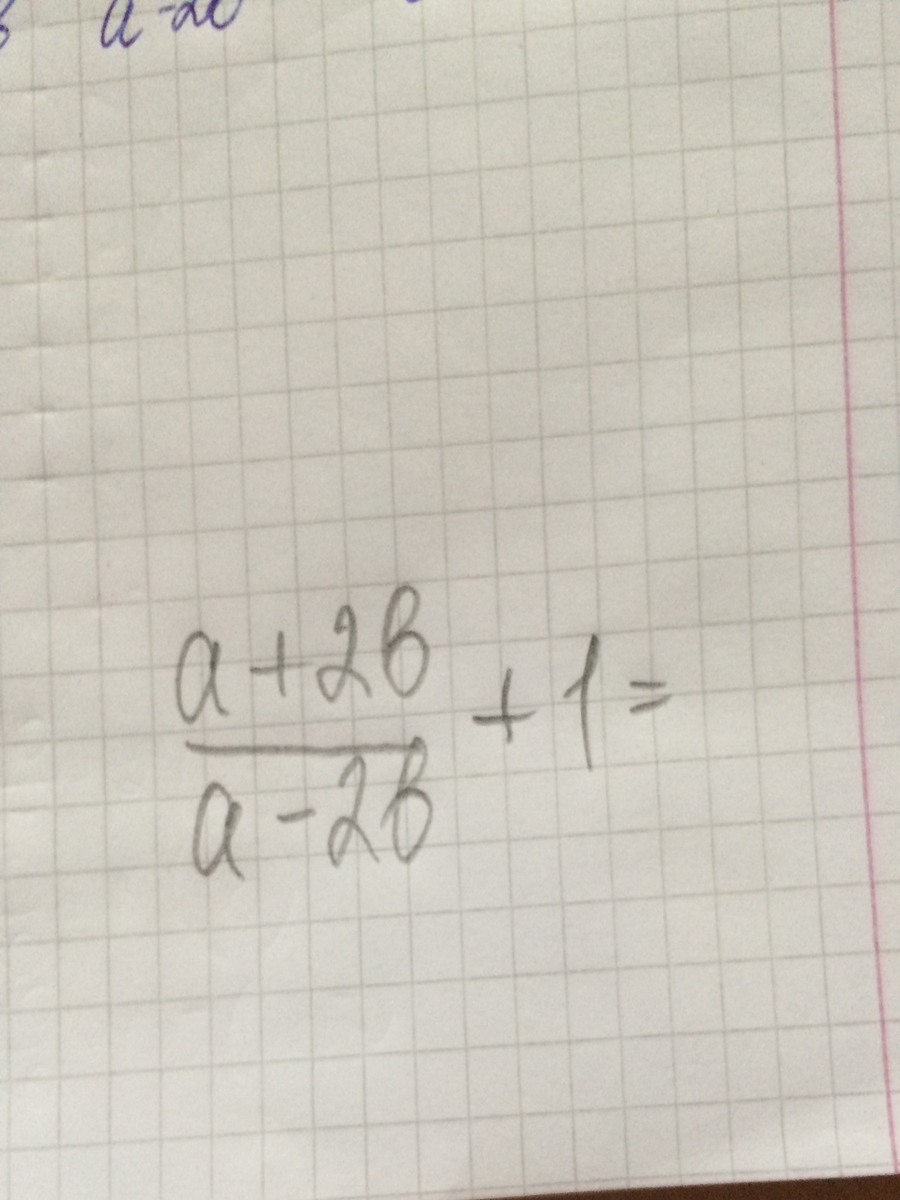 a-2b
a+2b
a-2b
+1=